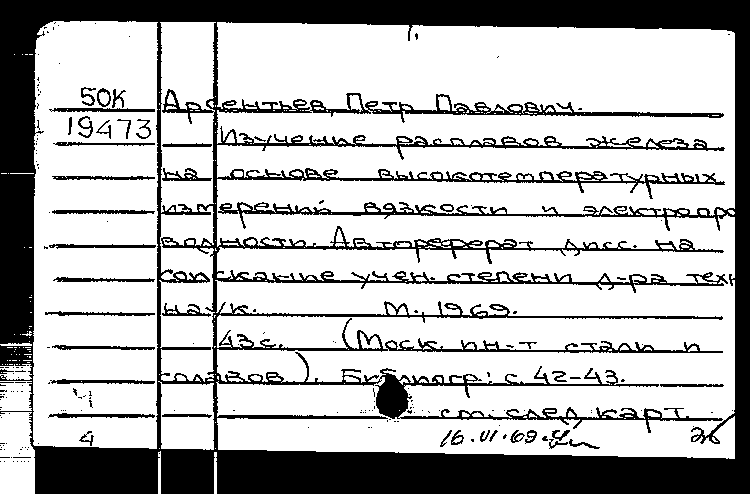 1.
50К Арсентьев, Петр Павлович.
19473 Изучение расплавов железа
на основе высокотемпературных
измерений вязкости и электропро
водности. Автореферат дисс. на
соискание учен. степени д-ра техн
наук. М., 1969.
43 с. (Моск. ин-т стали и
сплавов). Библиогр.: с. 42-43.
Ч см. след. карт.
4 16.VI.69.